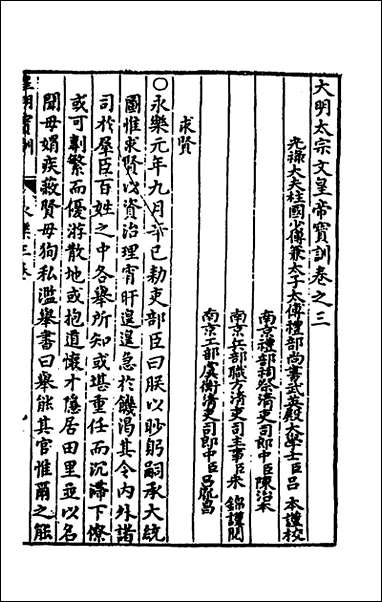 大明太宗文皇帝寶訓卷之三
光祿大夫柱國少傅兼太子太傅禮部尚書武英殿大學士臣呂 本謹校
南京禮部祠祭清吏司郎中臣陳治本
南京兵部職方清吏司主事臣朱 錦謹閱
南京工部虞衡清吏司郎中臣呂胤昌
求賢
○永樂元年九月辛巳勑吏部臣曰朕以眇躬嗣承大統
圖惟求賢以資治理宵旰遑遑急於饑渴其令內外諸
司於羣臣百姓之中各舉所知或堪重任而沉滯下僚
或可剸繁而優游散地或抱道懷才隱居田里並以名
聞毋媢疾蔽賢毋狗私濫舉書曰舉能其官惟爾之能
皇明寶訓 永樂三卷